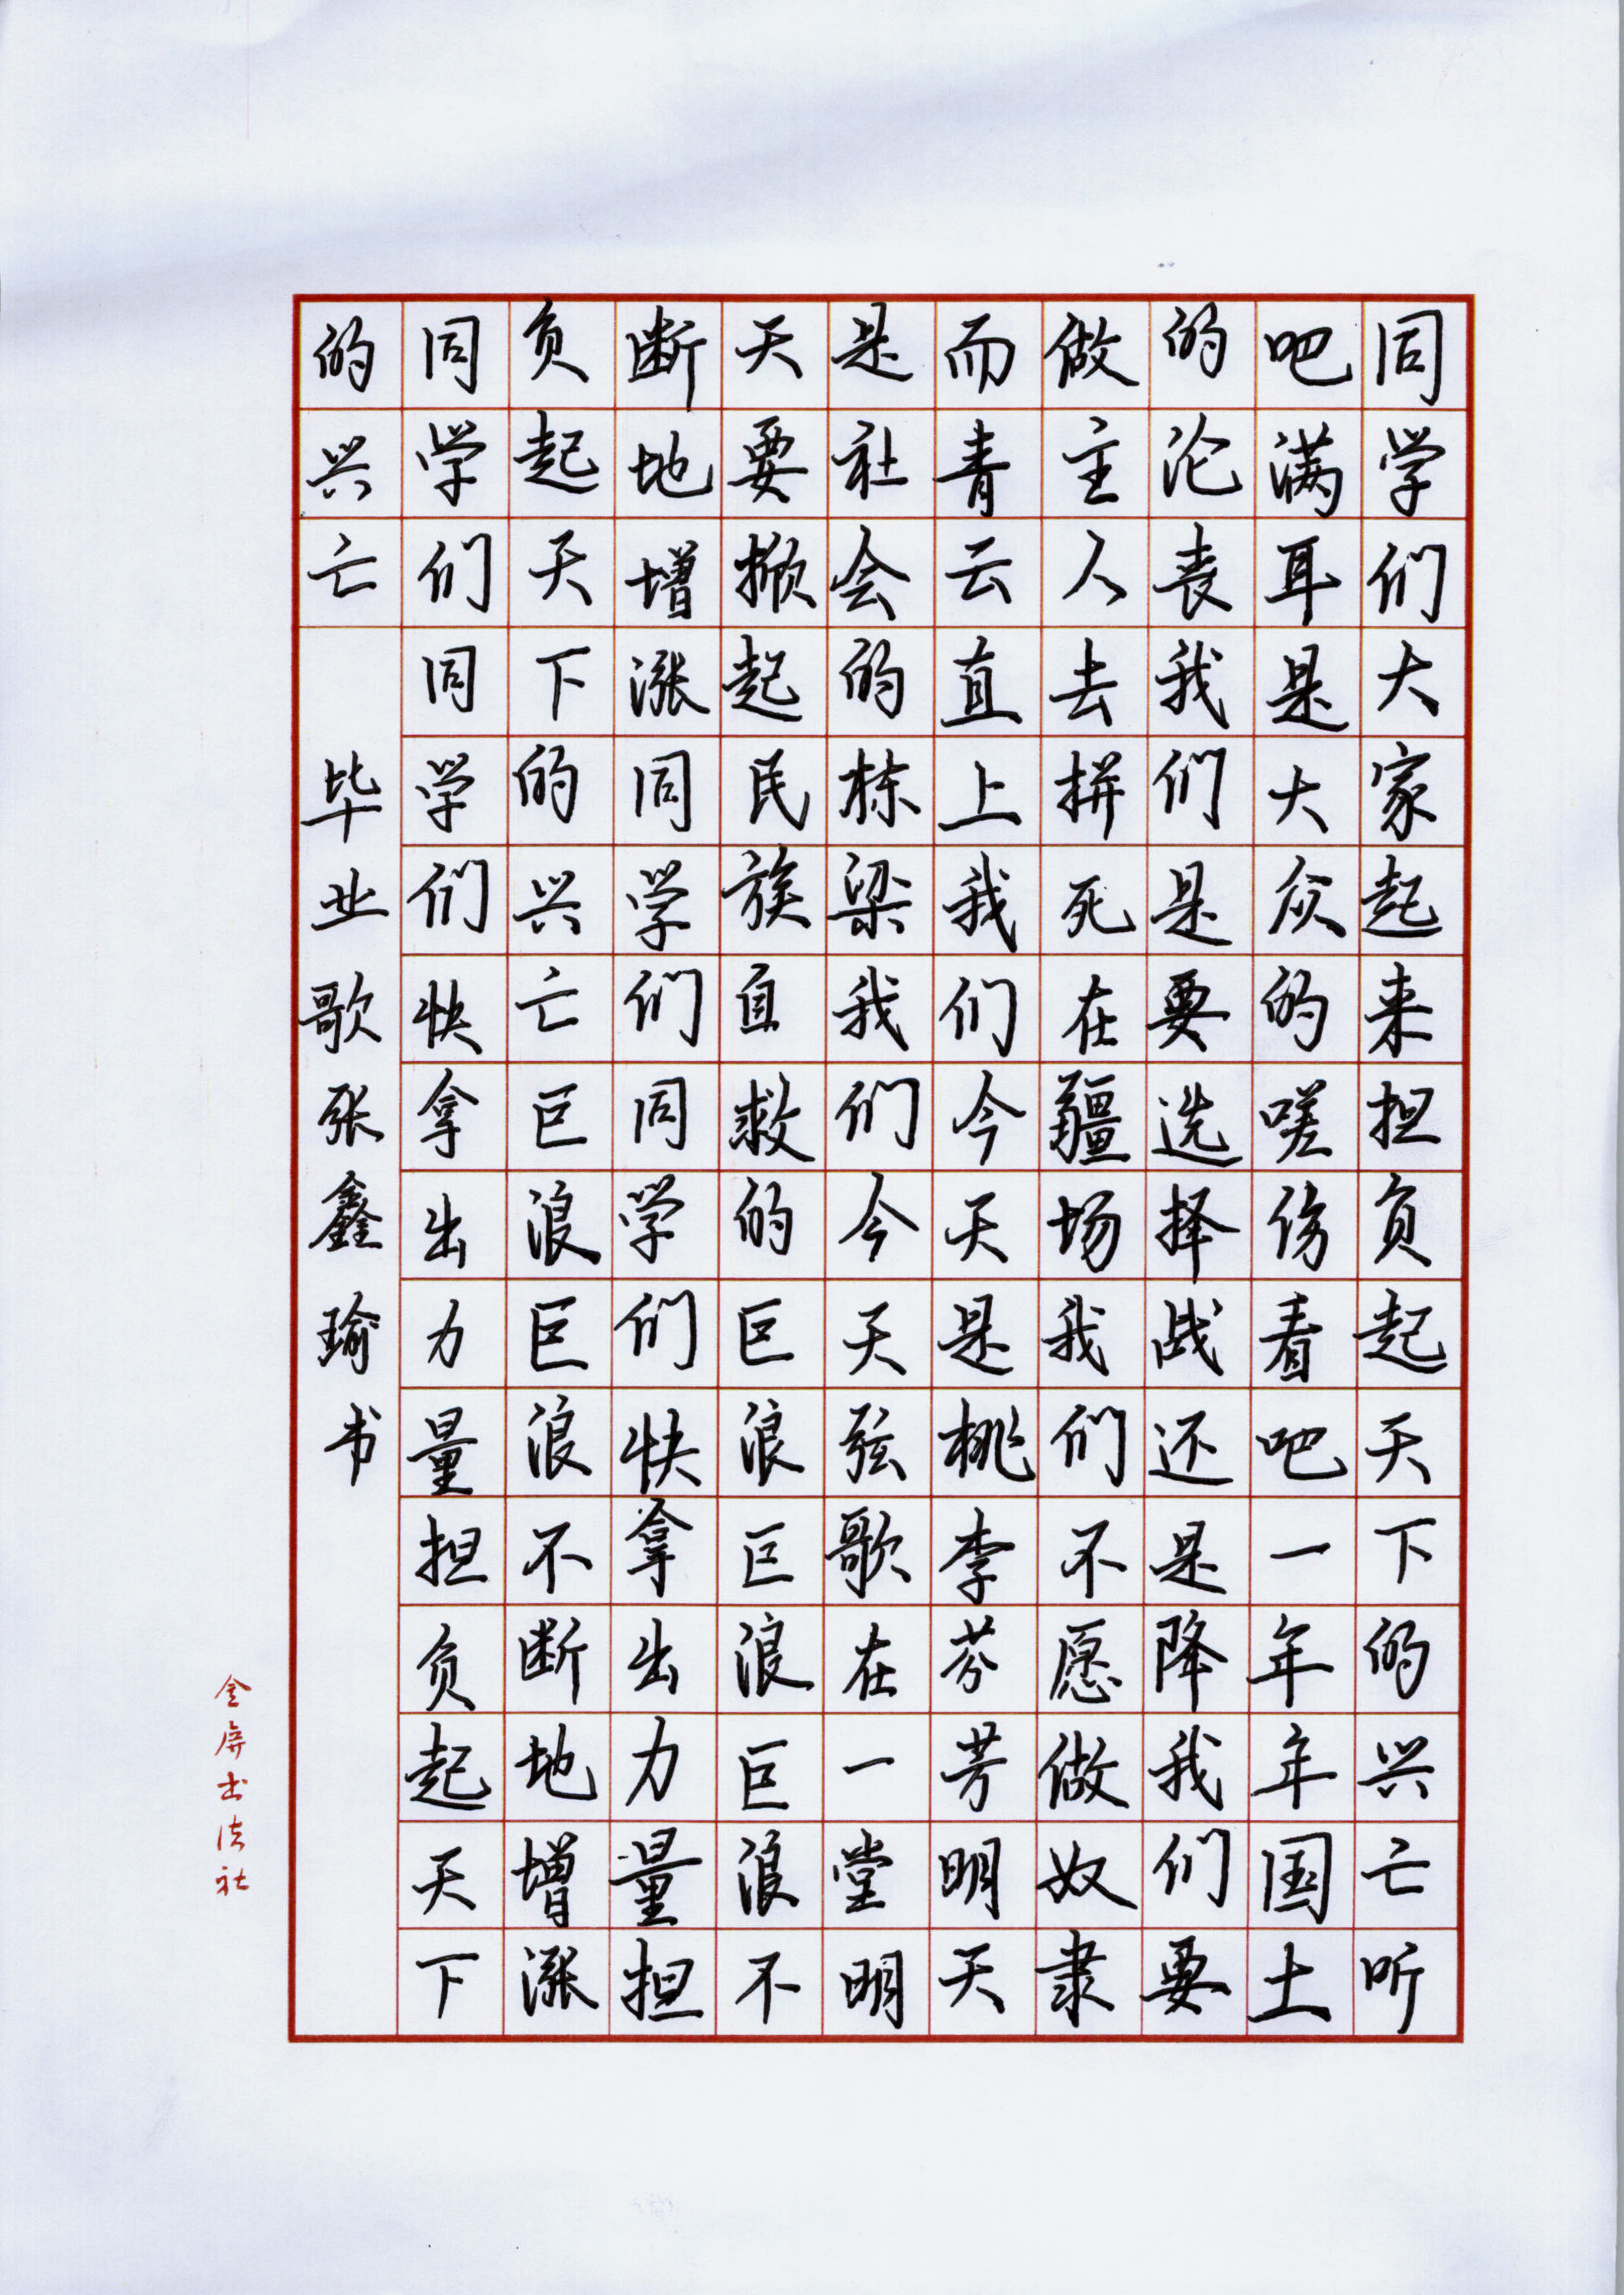 同学们大家起来担负起天下的兴亡听
吧满耳是大众的嗟伤看吧一年年国土
的沦丧我们是要选择战还是降我们要
做主人去拼死在疆场我们不愿做奴隶
而青云直上我们今天是桃李芬芳明天
是社会的栋梁我们今天弦歌在一堂明
天要掀起民族自救的巨浪巨浪巨浪不
断地增涨同学们同学们快拿出力量担
负起天下的兴亡巨浪巨浪不断地增涨
同学们同学们快拿出力量担负起天下
的兴亡 毕业歌张鑫瑜书
金屏书法社